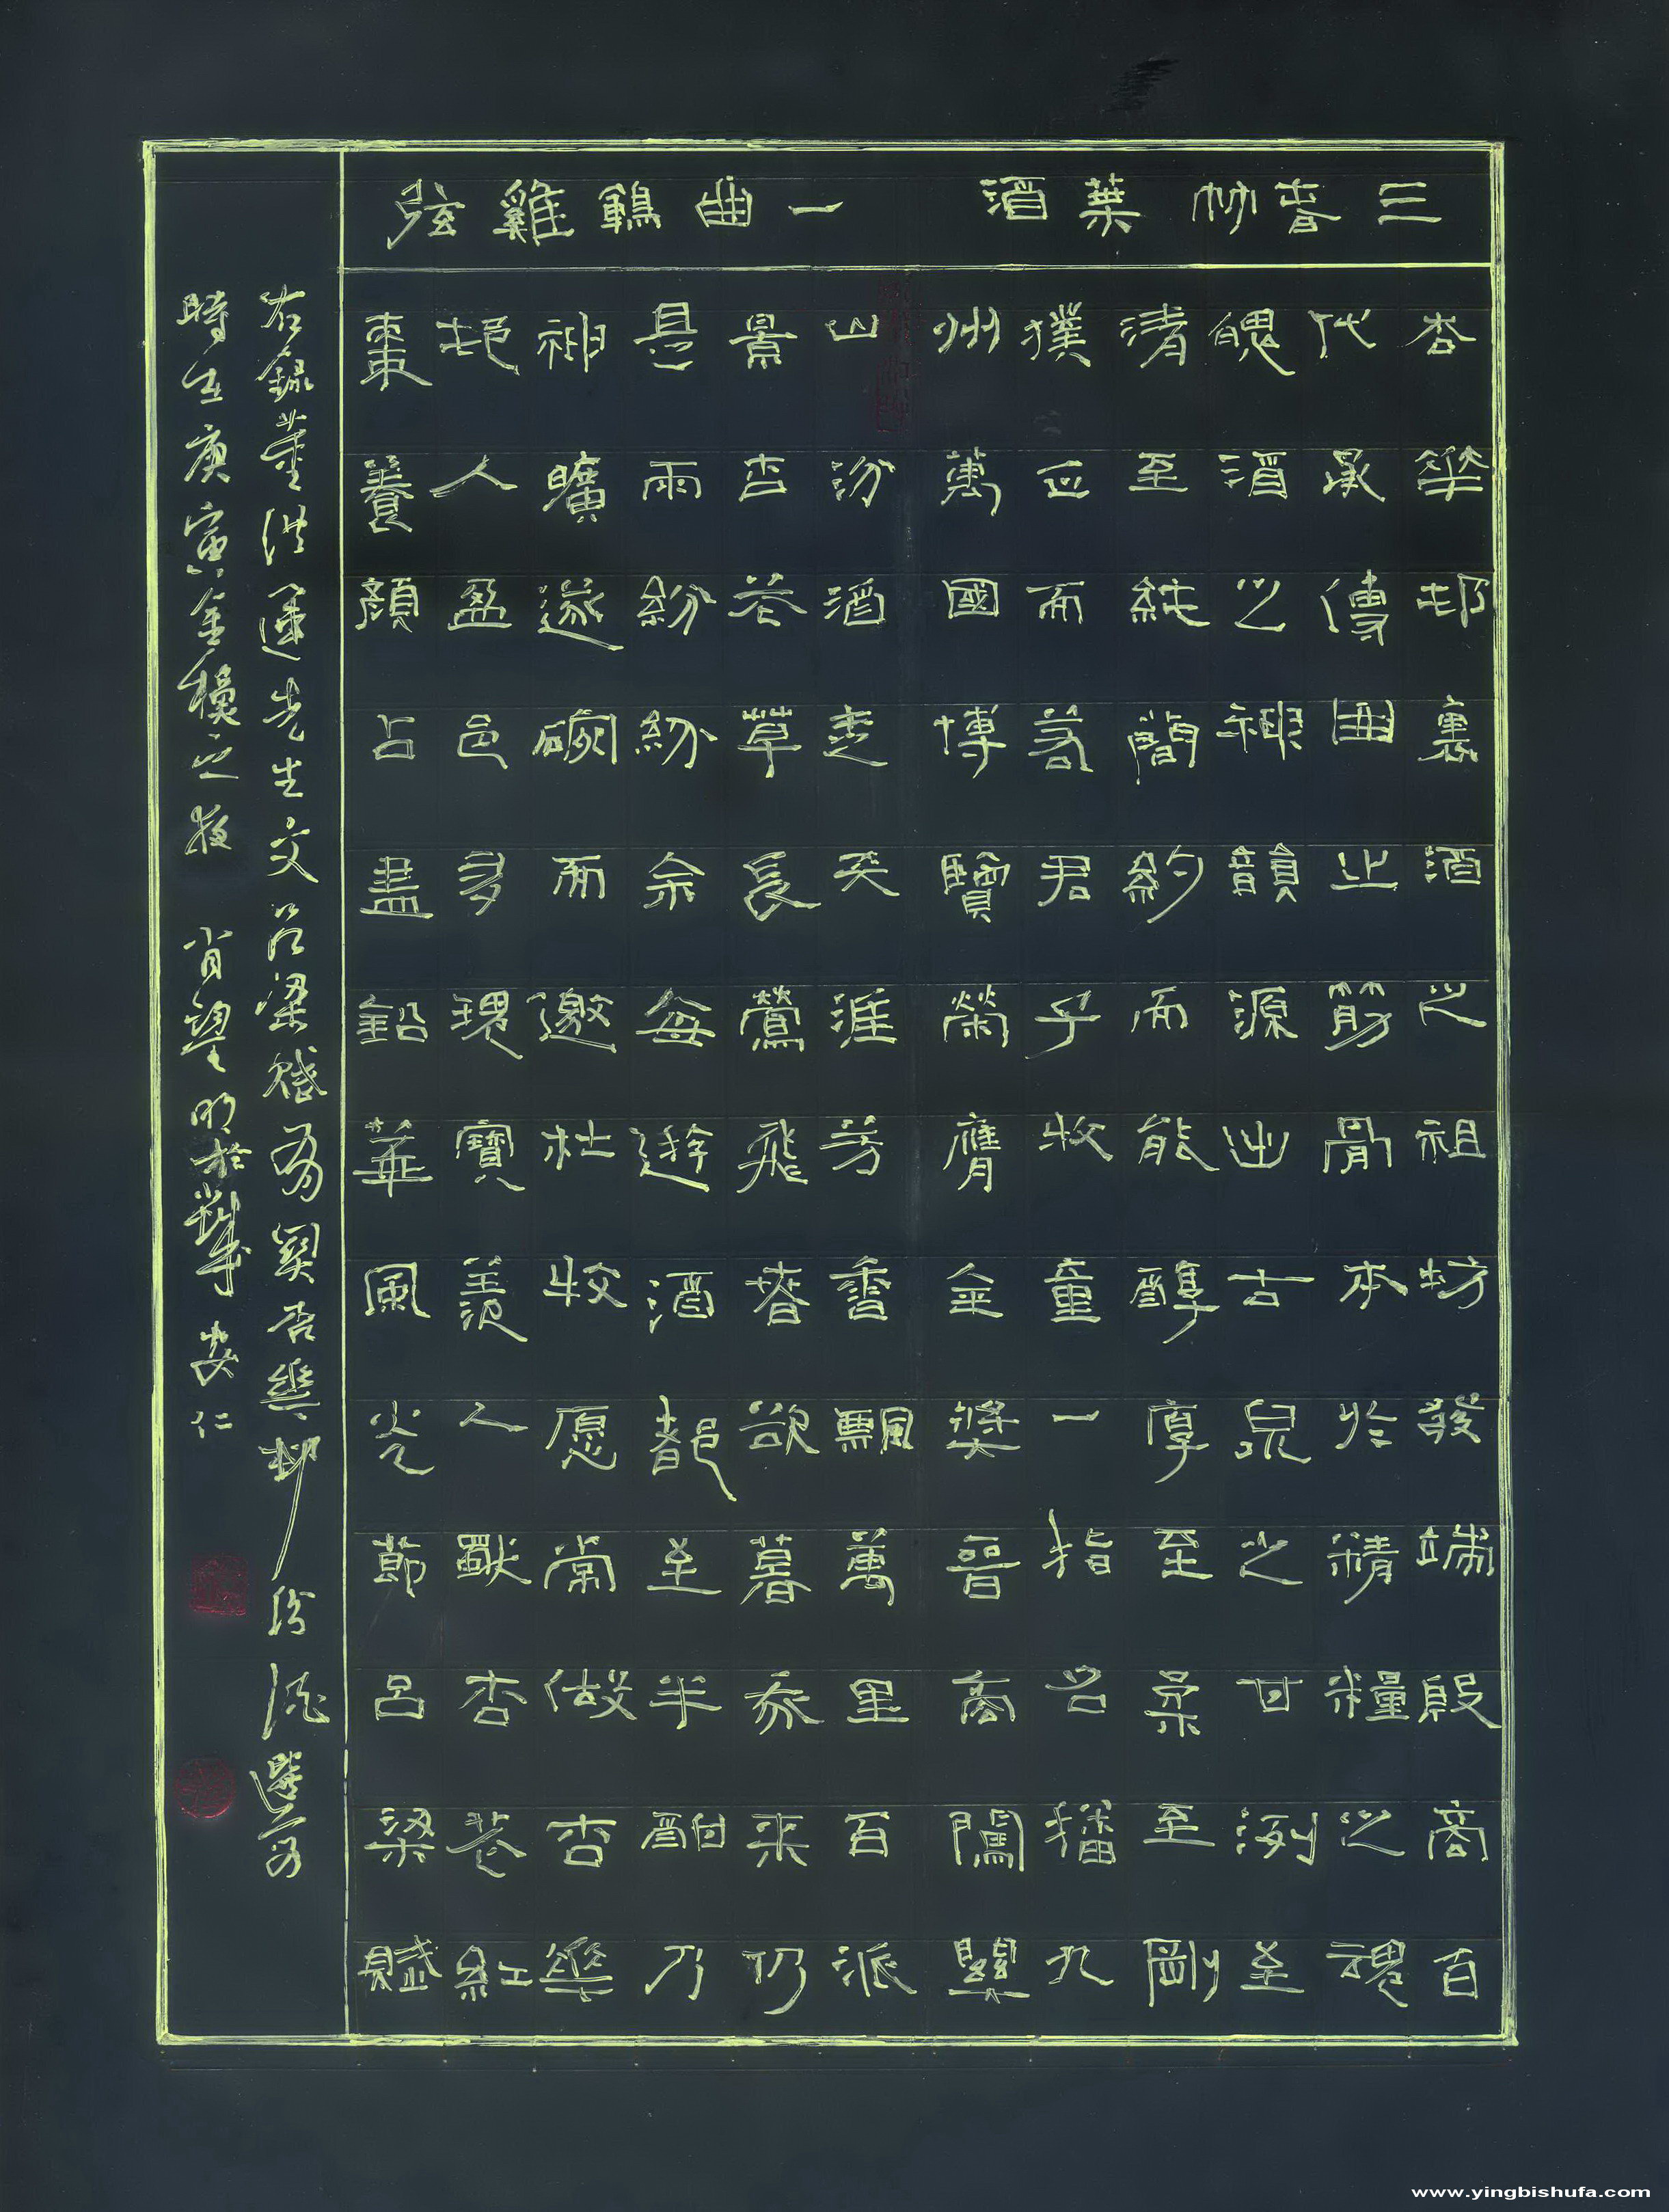 三春竹葉酒 一曲鵾雞弦
杏華邨裏酒之祖坊發端殷商百
代承傳曲之筋骨本於精糧之魂
魄酒之神韻源出古泉之甘洌至
清至純簡約而能醇厚至柔至剛
樸正而若君子牧童一指名播九
州萬國博覽榮膺金獎晉商闖關
山汾酒走天涯芳香飄萬里百派
景杏花草長鶯飛春欲暮來仍
是雨紛紛余每遊酒都至半酣乃
神曠遂碗而邀杜牧愿常做杏華
邨人盈邑多瑰寶羨人獸杏花紅
棗養顏占盡鉛華風光節呂梁賦
右錄董洪運先生文呂梁賦杏華邨汾酒選句
時在庚寅金穐之 肖望明於 安仁
www.yingbishufa.com